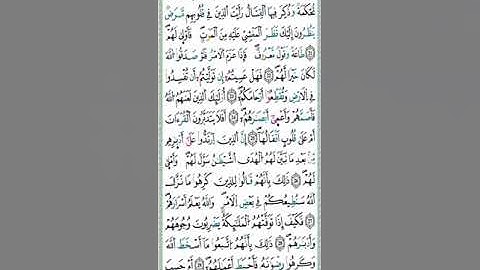 مُّحْكَمَةٌ وَذُكِرَ فِيهَا ٱلْقِتَالُ رَأَيْتَ ٱلَّذِينَ فِى قُلُوبِهِم مَّرَضٌ
يَنظُرُونَ إِلَيْكَ نَظَرَ ٱلْمَغْشِىِّ عَلَيْهِ مِنَ ٱلْمَوْتِ ۖ فَأَوْلَىٰ لَهُمْ
﴿٢٠﴾ طَاعَةٌ وَقَوْلٌ مَّعْرُوفٌ ۚ فَإِذَا عَزَمَ ٱلْأَمْرُ فَلَوْ صَدَقُوا۟ ٱللَّهَ
لَكَانَ خَيْرًا لَّهُمْ ﴿٢١﴾ فَهَلْ عَسَيْتُمْ إِن تَوَلَّيْتُمْ أَن تُفْسِدُوا۟
فِى ٱلْأَرْضِ وَتُقَطِّعُوٓا۟ أَرْحَامَكُمْ ﴿٢٢﴾ أُو۟لَٰٓئِكَ ٱلَّذِينَ لَعَنَهُمُ ٱللَّهُ
فَأَصَمَّهُمْ وَأَعْمَىٰٓ أَبْصَٰرَهُمْ ﴿٢٣﴾ أَفَلَا يَتَدَبَّرُونَ ٱلْقُرْءَانَ
أَمْ عَلَىٰ قُلُوبٍ أَقْفَالُهَآ ﴿٢٤﴾ إِنَّ ٱلَّذِينَ ٱرْتَدُّوا۟ عَلَىٰٓ أَدْبَٰرِهِم
مِّنۢ بَعْدِ مَا تَبَيَّنَ لَهُمُ ٱلْهُدَى ۙ ٱلشَّيْطَٰنُ سَوَّلَ لَهُمْ وَأَمْلَىٰ
لَهُمْ ﴿٢٥﴾ ذَٰلِكَ بِأَنَّهُمْ قَالُوا۟ لِلَّذِينَ كَرِهُوا۟ مَا نَزَّلَ
ٱللَّهُ سَنُطِيعُكُمْ فِى بَعْضِ ٱلْأَمْرِ ۖ وَٱللَّهُ يَعْلَمُ إِسْرَارَهُمْ
﴿٢٦﴾ فَكَيْفَ إِذَا تَوَفَّتْهُمُ ٱلْمَلَٰٓئِكَةُ يَضْرِبُونَ وُجُوهَهُمْ
وَأَدْبَٰرَهُمْ ﴿٢٧﴾ ذَٰلِكَ بِأَنَّهُمُ ٱتَّبَعُوا۟ مَآ أَسْخَطَ ٱللَّهَ
وَكَرِهُوا۟ رِضْوَٰنَهُۥ فَأَحْبَطَ أَعْمَٰلَهُمْ ﴿٢٨﴾ أَمْ حَسِبَ